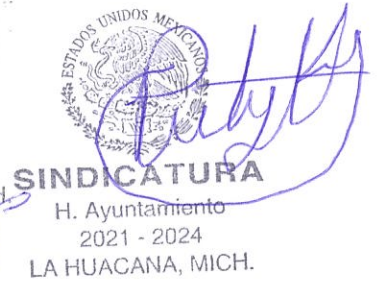 ESTADOS UNIDOS MEXICANOS
SINDICATURA
H. Ayuntamiento
2021 - 2024
LA HUACANA, MICH.